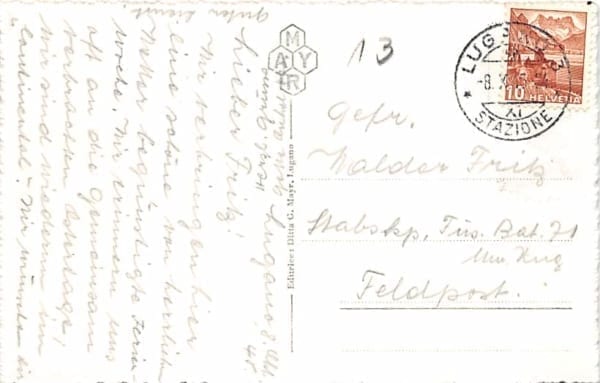 Lugano 8. Okt. 40.
Lieber Fritz!
Wir verbringen hier
eine schöne von herrlichem
Wetter begünstigte Ferien-
woche. Wir erinnern uns
oft an die gemeinsam
verbrachten Ostertage,
wir sind wiederum im
Continental. Wir wünschen Dir
guten Dienst
MAYR
Editrice: Ditta G. Mayr, Lugano
13
LUGANO
-8.X.
XI
STAZIONE
10
HELVETIA
Gefr.
Walder Fritz
Stabskp. Füs. Bat. 71
Feldpost.